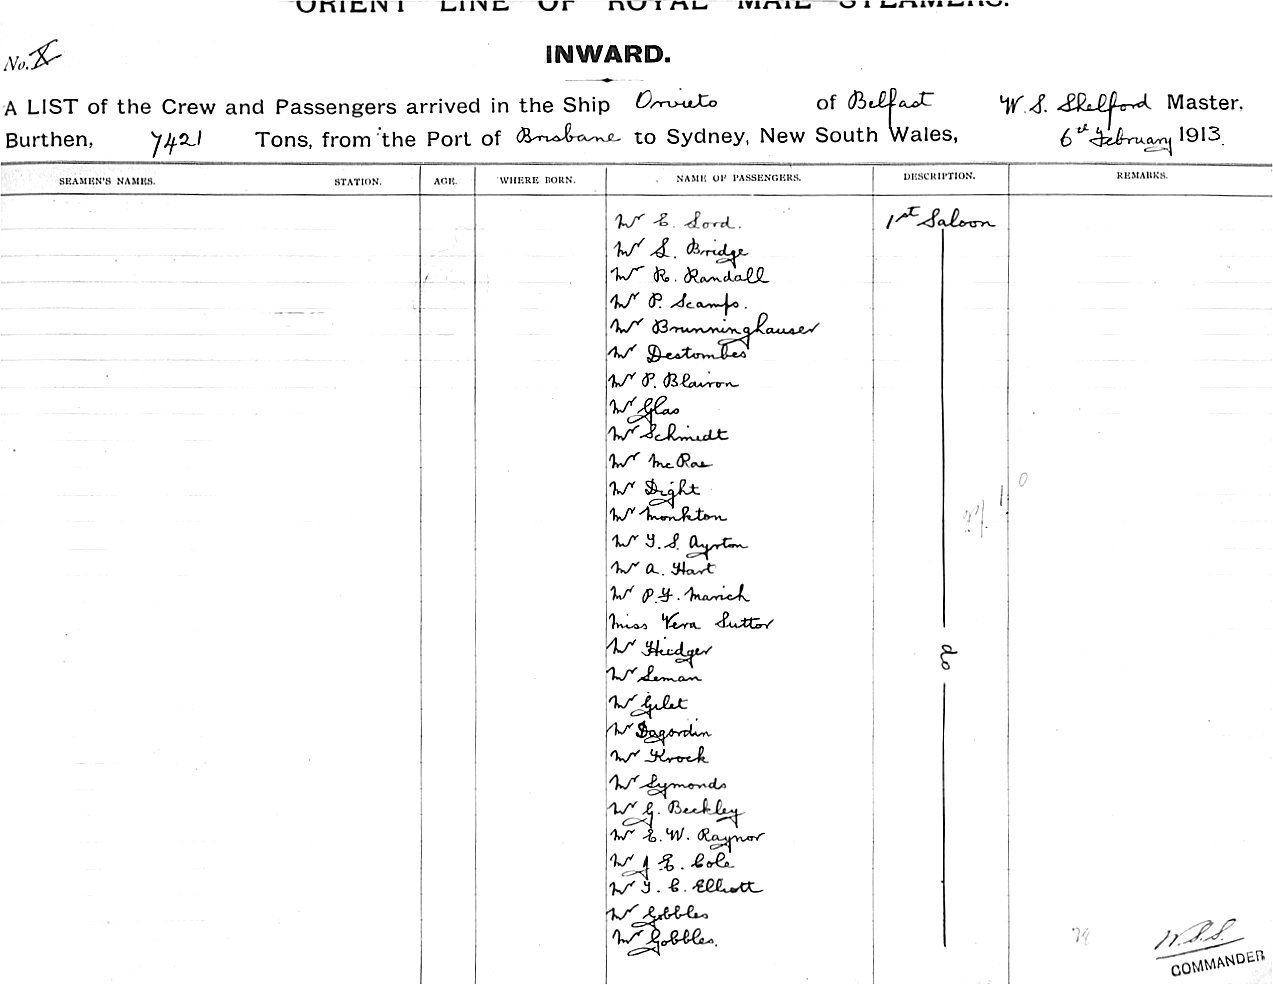 ORIENT LINE OF ROYAL MAIL STEAMERS.
No. X
INWARD.
A LIST of the Crew and Passengers arrived in the Ship Orvieto of Belfast W. S. Shelford Master,
Burthen, 7421 Tons, from the Port of Brisbane to Sydney, New South Wales, 6th February 1913.
SEAMEN'S NAMES. STATION. AGE. WHERE BORN. NAME OF PASSENGERS. DESCRIPTION. REMARKS.
Mr E. Lord. 1st Saloon
Mr S. Bridge
Mr R. Randall
Mr P. Scamps.
Mr Brunninghauser
Mr Destombes
Mr P. Blairon
Mr Glas
Mr Schmidt
Mr McRae
Mr Dight
Mr Monkton
Mr T. S. Ayrton
Mr A. Hart
Mr P. Y. Marich
Miss Vera Suttor
Mr Hidger do
Mr Leman
Mr Gilet
Mr Dagordin
Mr Krock
Mr Symonds
Mr G. Beckley
Mr E. W. Raynor
Mr J E. Cole
Mr T. C. Elliott
Mr Gobbles
Mr Gobbles.
W.S.S.
COMMANDER